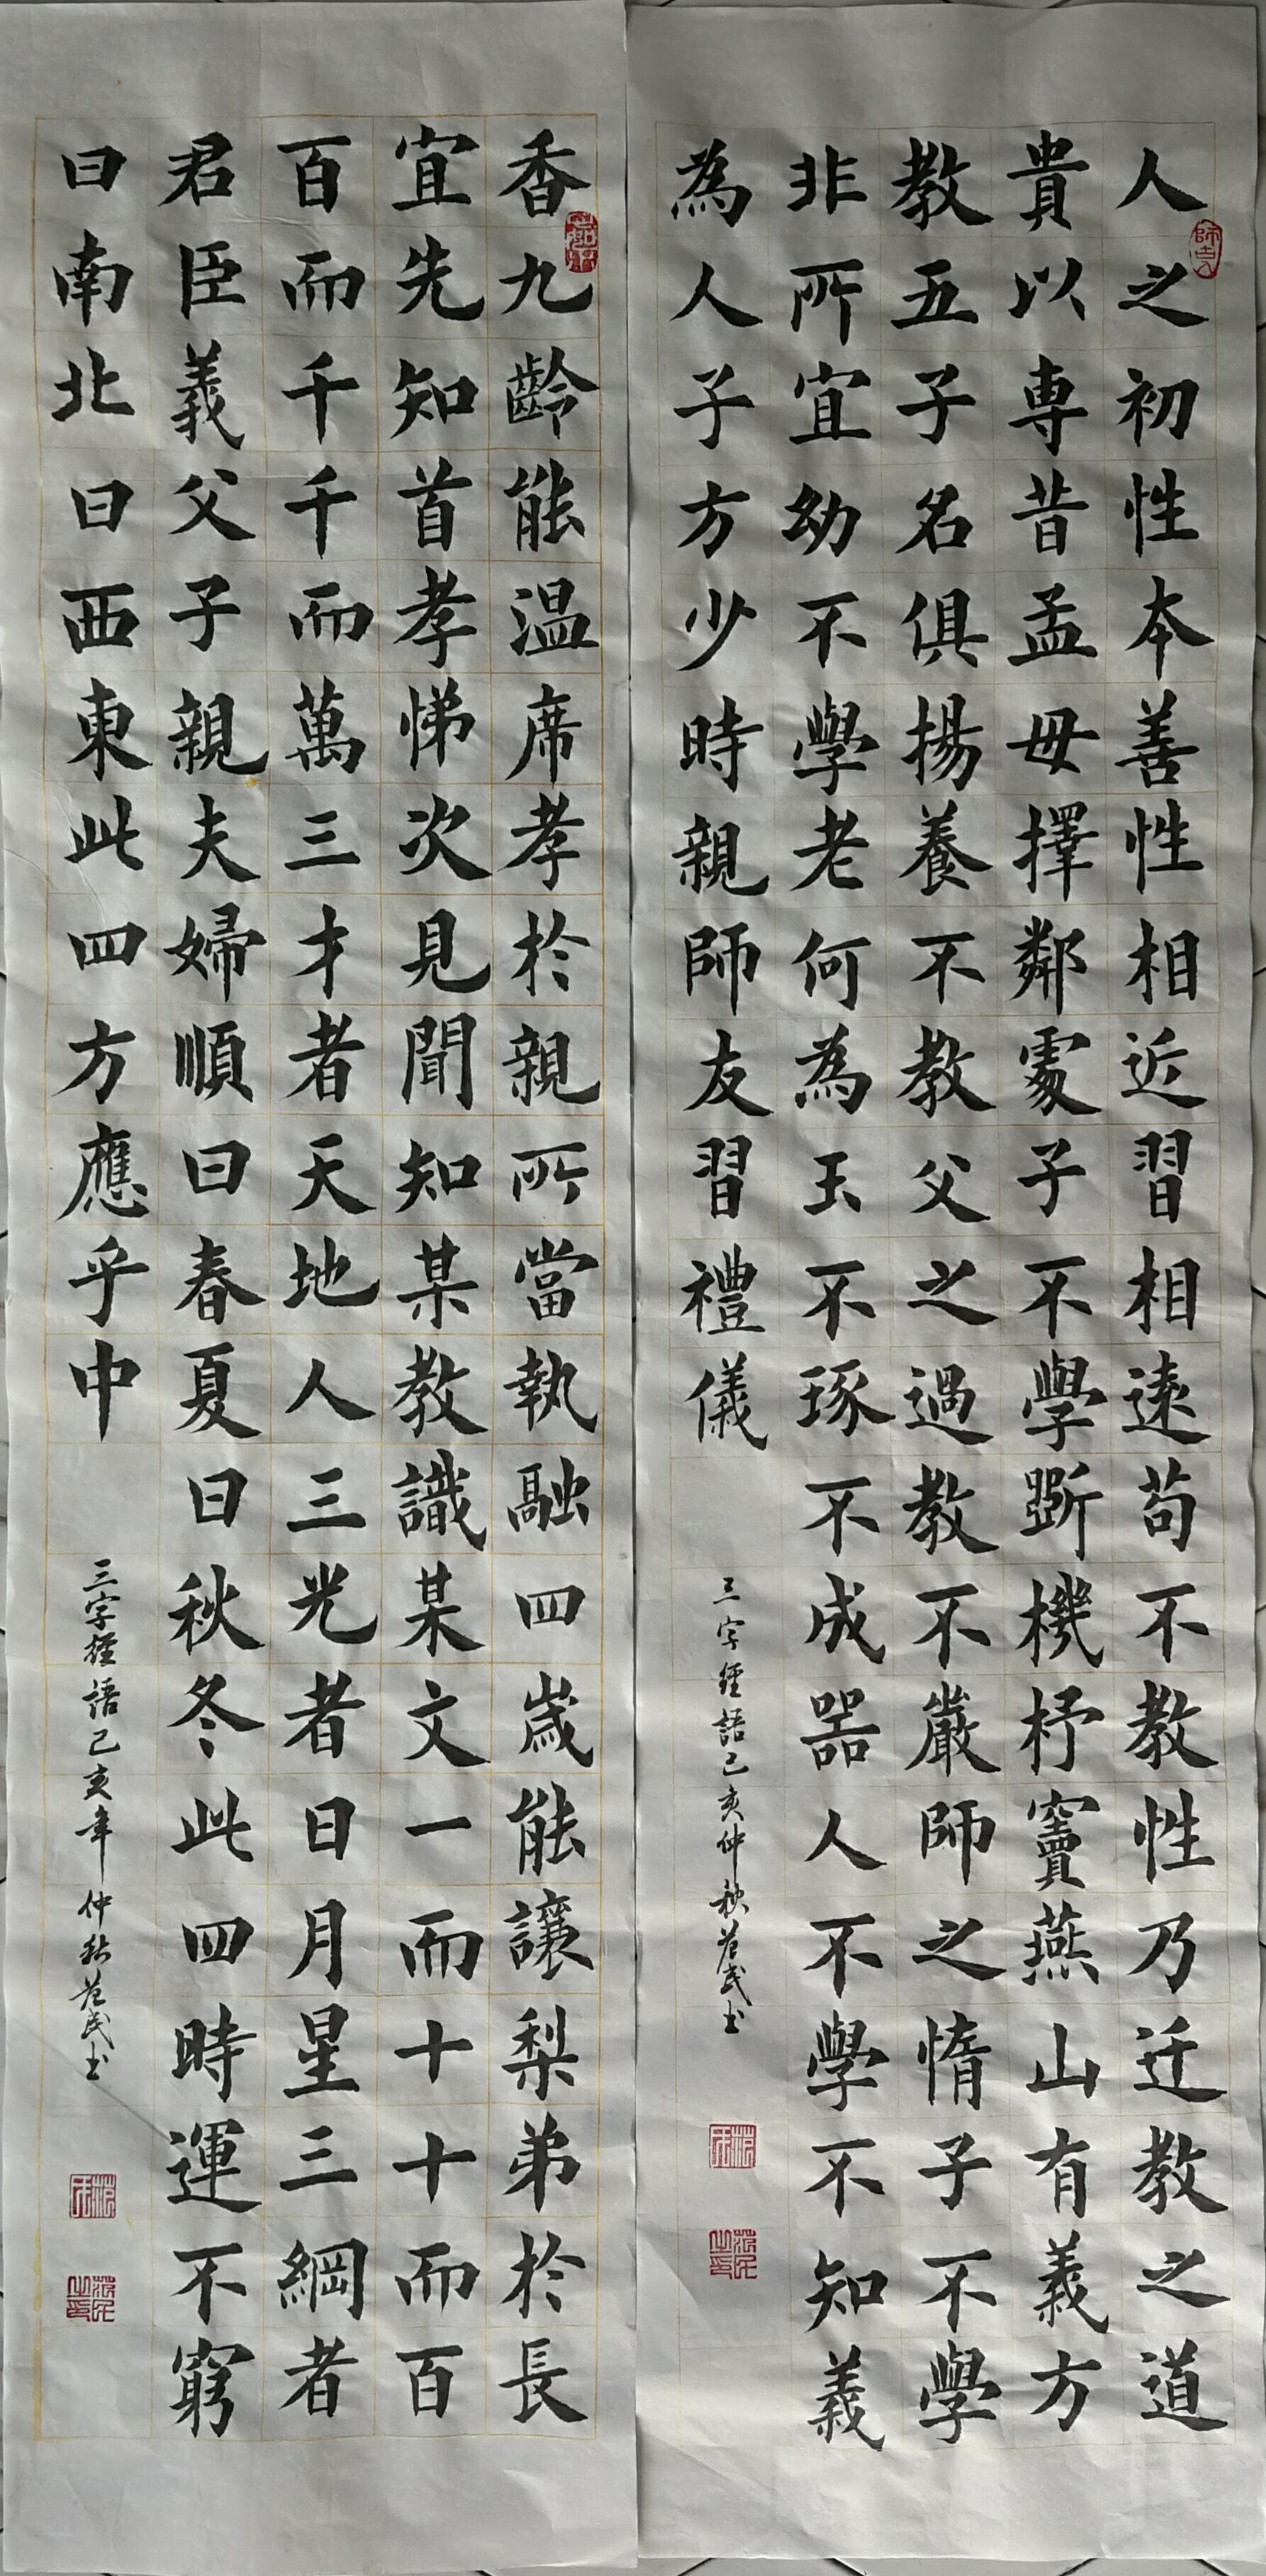 人之初性本善性相近習相遠苟不教性乃迁教之道
貴以専昔孟母擇鄰處子不學斷機杼竇燕山有義方
教五子名俱揚養不教父之過教不嚴師之惰子不學
非所宜幼不學老何為玉不琢不成器人不學不知義
為人子方少時親師友習禮儀
三字經語己亥仲秋范民书
師古人
香九齡能溫席孝於親所當執融四歲能讓梨弟於長
宜先知首孝悌次見聞知某教識某文一而十十而百
百而千千而萬三才者天地人三光者日月星三綱者
君臣義父子親夫婦順曰春夏曰秋冬此四時運不窮
曰南北曰西東此四方應乎中
三字經語己亥年仲秋范民书